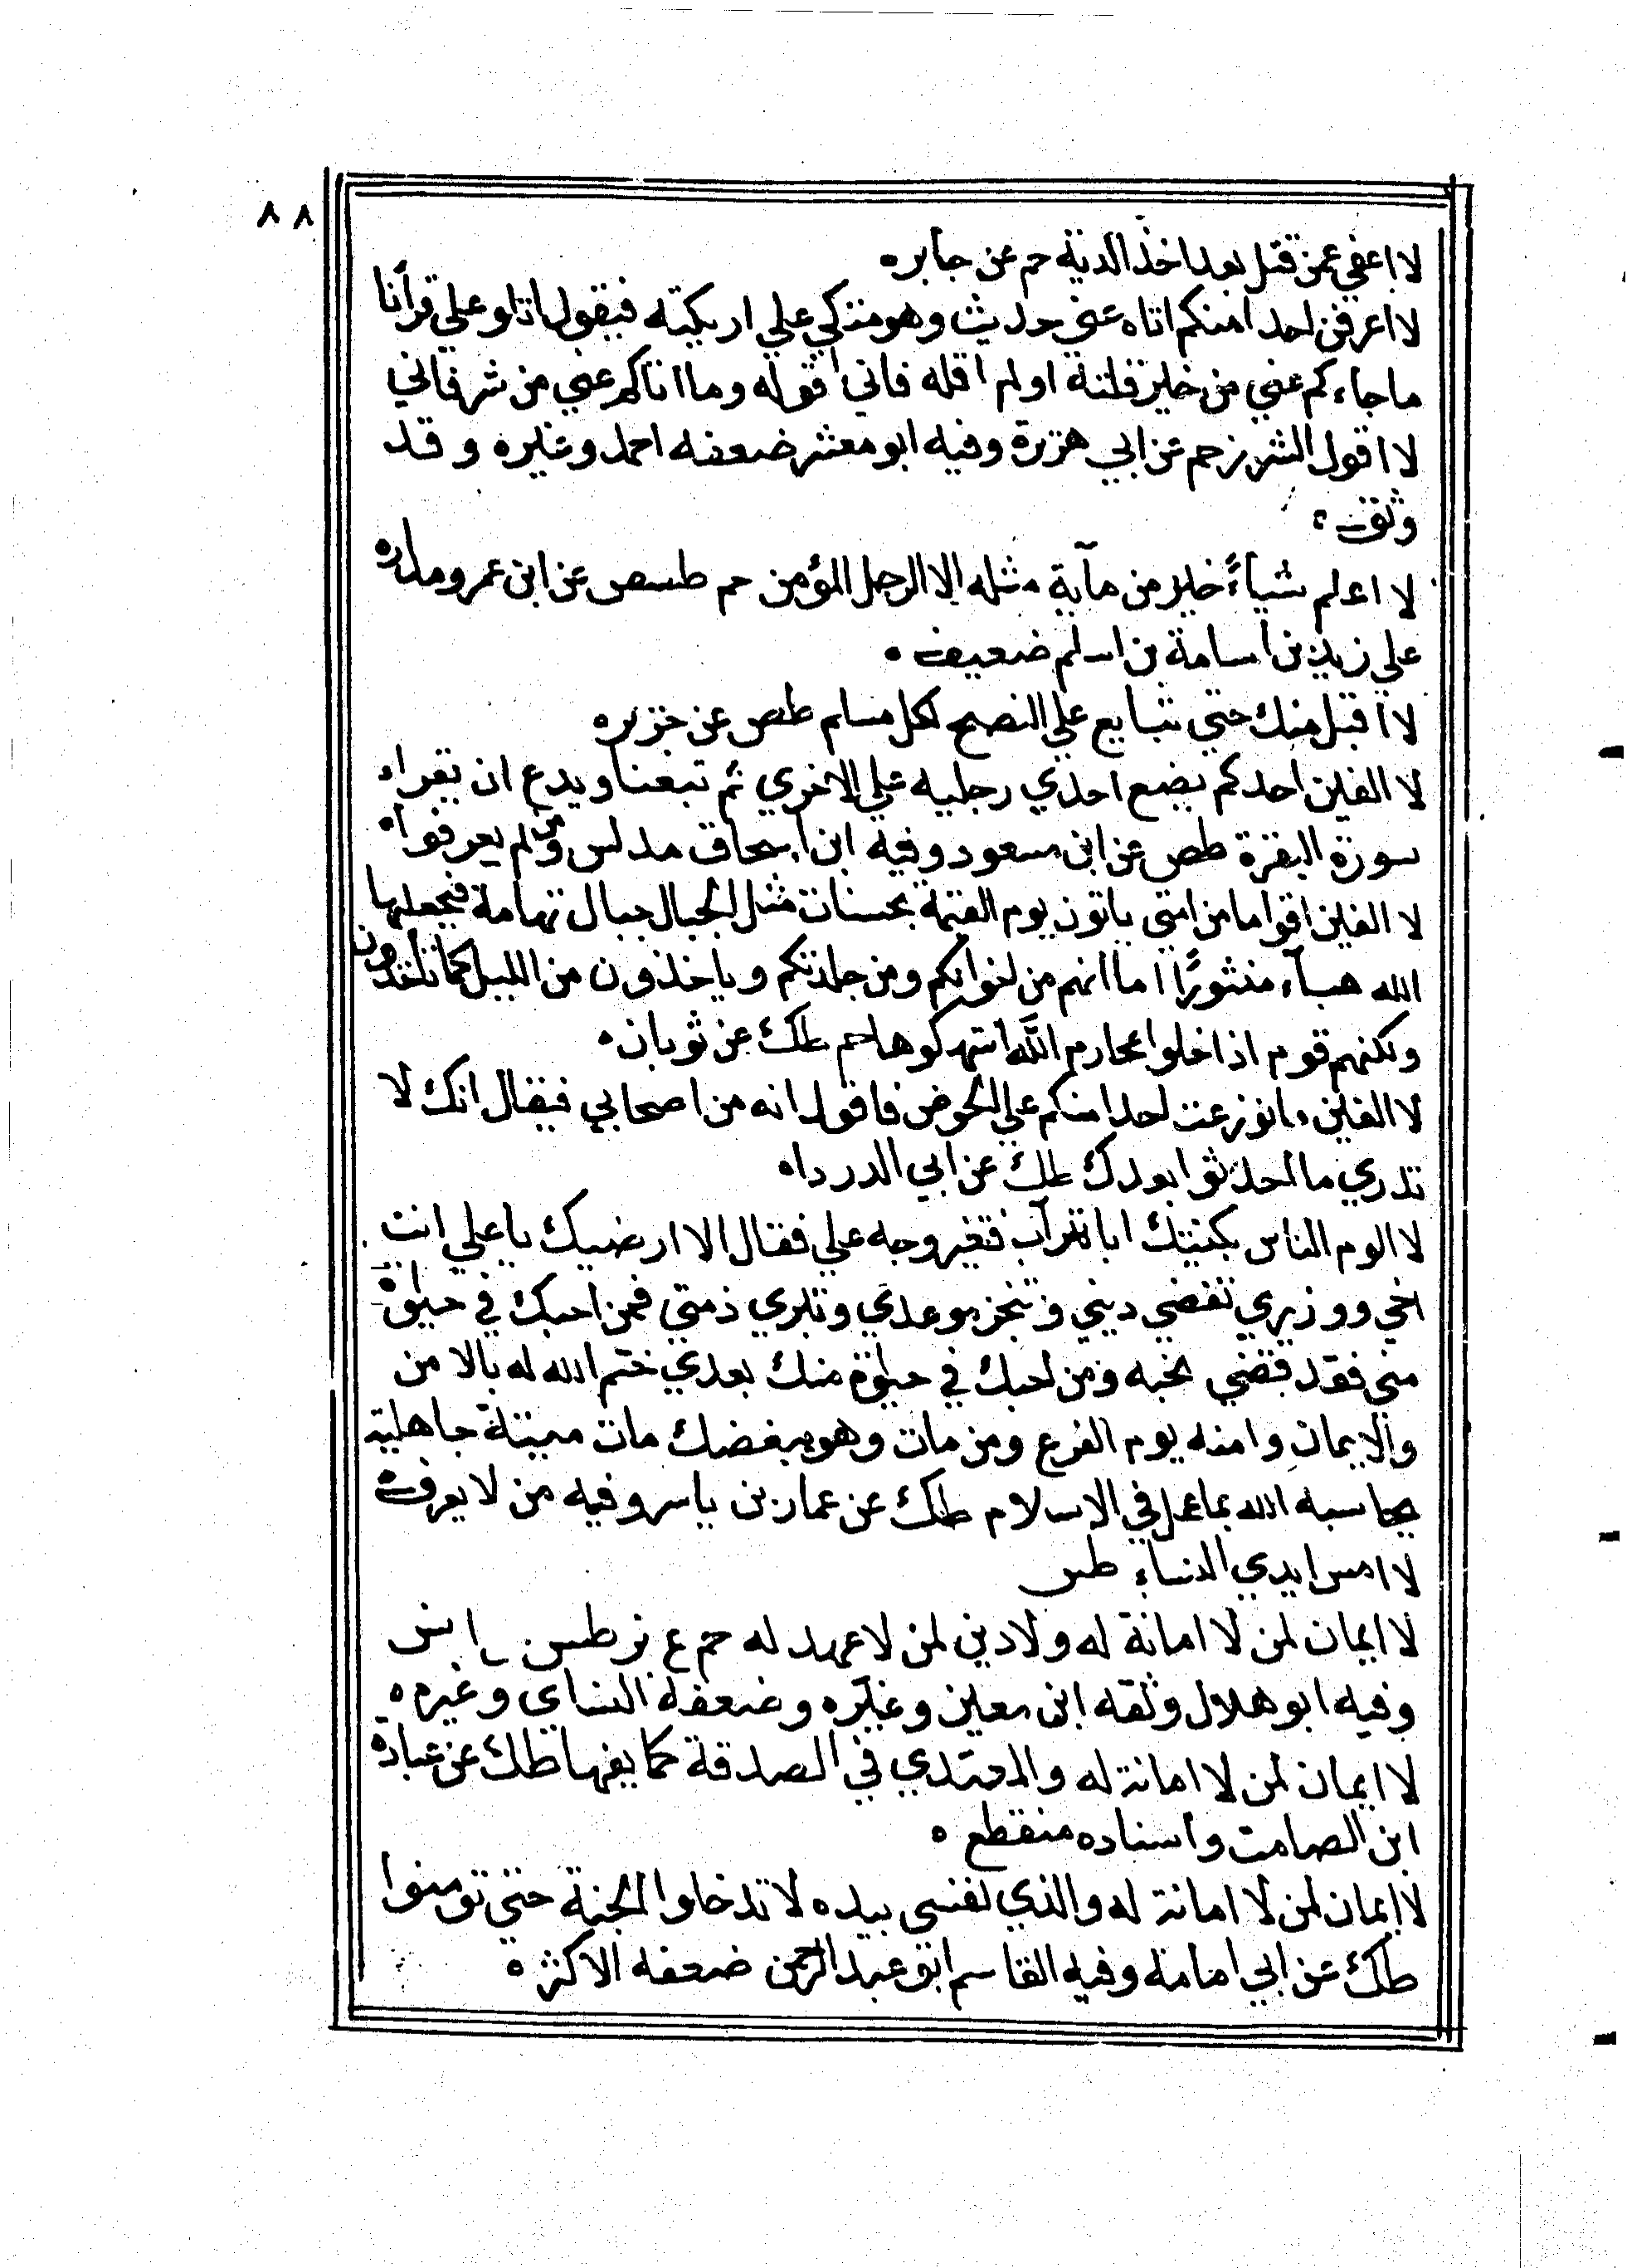 ٨٨
لا اعفي عمن قتل بعد اخذ الدية حم عن جابر ه
لا اعرفن احدا منكم اتاه عني حديث وهو متكي علي اريكته فيقول اتلو علي قرآنا
ما جاءكم عني من خير قلته او لم اقله فاني اقوله وما اتاكم عني من شر فاني
لا اقول الشر ز حم عن ابي هريرة وفيه ابو معشر ضعفه احمد وغيره وقد
وثق ه
لا اعلم شياءً خير من مآية مثله الا الرجل المؤمن حم طسص عن ابن عمر ومداره
علي زيد بن اسامة بن اسلم ضعيف ه
لا اقبل منك حتي تبايع علي النصح لكل مسلم طص عن جرير ه
لا الفين احدكم يضع احدي رجليه علي الاخري ثم تبغنا ويدع ان يقراء
سورة البقرة طص عن ابن مسعود وفيه ابن اسحاق مدلس ومن لم يعرفوا ه
لا الفين اقواما من امتي ياتون يوم القيمة بحسنات مثل الجبال جبال تهامة فيجعلها
الله هبآء منثورًا اما انهم من اخوانكم ومن جلدتكم وياخذون من الليل كما تاخذون
ولكنهم قوم اذا خلوا بمحارم الله انتهكوها حم طك عن ثوبان ه
لا الفين ما نوزعت احدا منكم علي الحوض فاقول انه من اصحابي فيقال انك لا
تدري ما احدثوا بعدك طك عن ابي الدرداء
لا الوم الناس بكنيتك ابا تراب فتغير وجه علي فقال الا ارضيك يا علي انت
اخي ووزيري تقضي ديني وتنجز موعدي وتبري ذمتي فمن احبك في حياة
مني فقد قضي نحبه ومن احبك في حياة منك بعدي ختم الله له بالامن
والايمان وامنه يوم الفزع ومن مات وهو يبغضك مات ميتة جاهلية
يحاسبه الله بما عمل في الاسلام طك عن عمار بن ياسر وفيه من لا يعرف ه
لا امس ايدي النساء طس
لا ايمان لمن لا امانة له ولا دين لمن لا عهد له حم ع ز طس انس
وفيه ابو هلال وثقه ابن معين وغيره وضعفه النساي وغيره ه
لا ايمان لمن لا امانة له والمعتدي في الصدقة كمانعها طك عن عبادة
ابن الصامت واسناده منقطع ه
لا ايمان لمن لا امانة له والذي نفسي بيده لا تدخلوا الجنة حتي تومنوا
طك عن ابي امامة وفيه القاسم ابو عبد الرحمن ضعفه الاكثر ه